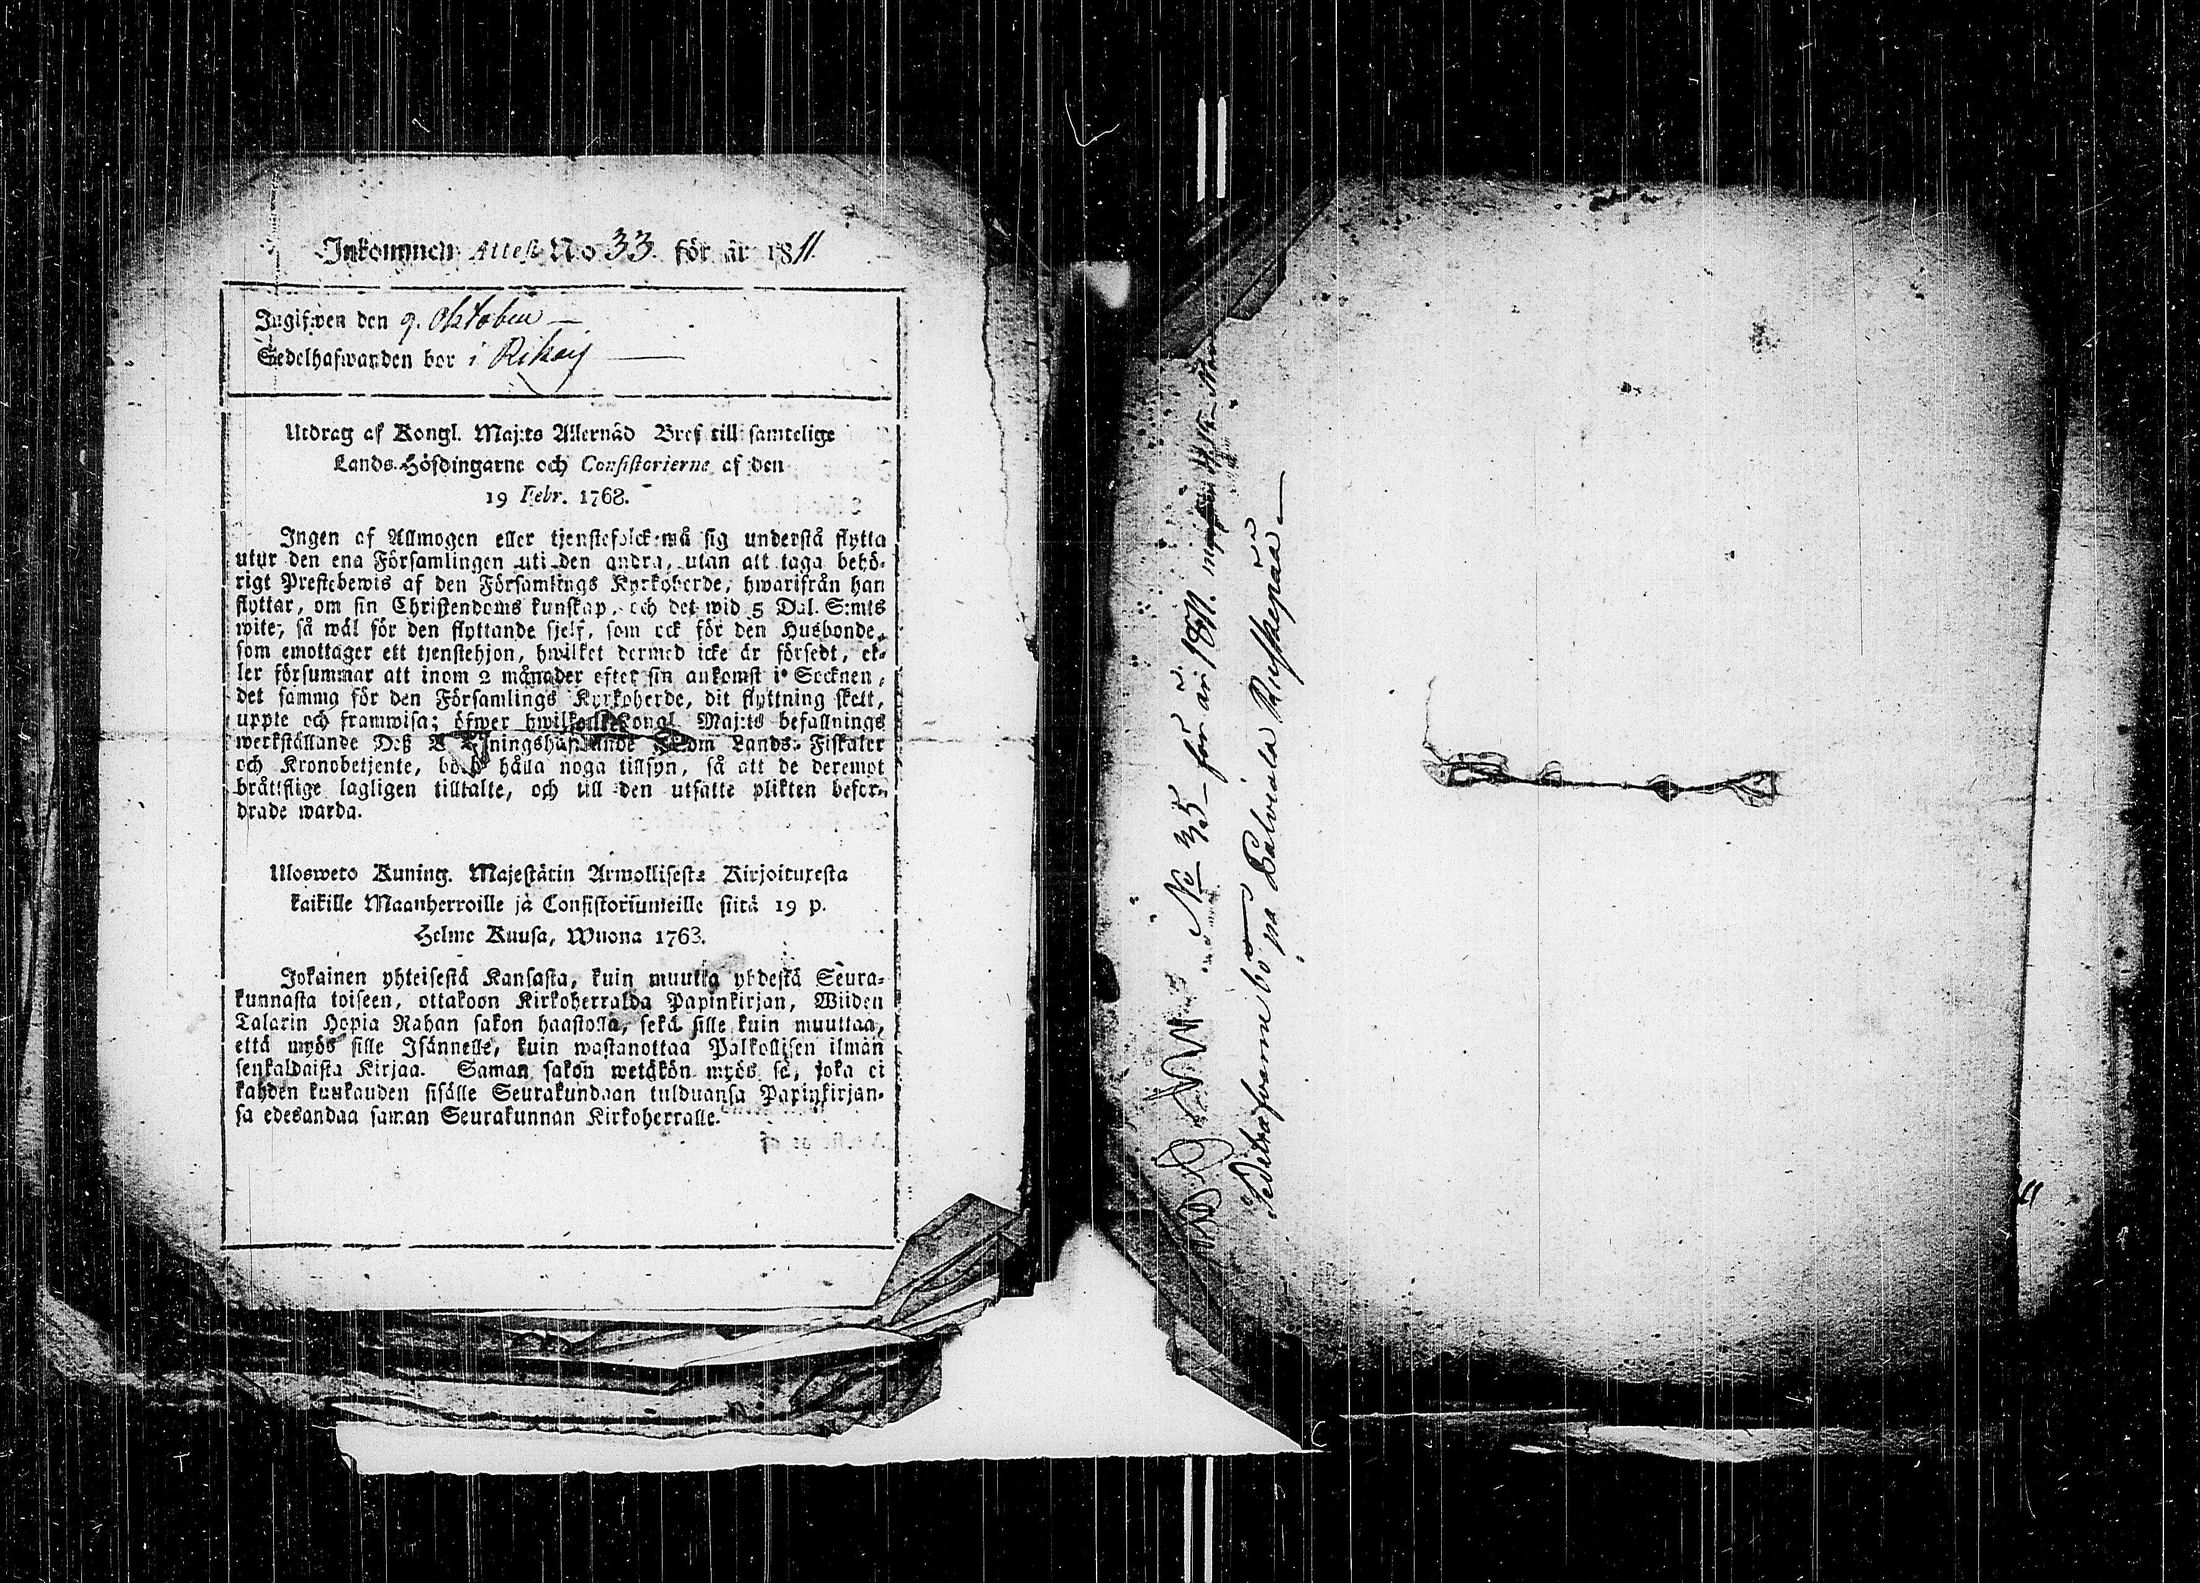 Inkommen Attest No 33. för år 1811.
Ingifwen den 9. Oktober
Sedelhafwanden bor i
Utdrag af Kongl. Maj:ts Allernåd Bref till samtelige
Lands-Höfdingarne och Consistorierne af den
19 Febr. 1768.
Ingen af Allmogen eller tjenstefolck må sig understå flytta
utur den ena Församlingen uti den andra, utan att taga behö-
rigt Prestebewis af den Församlings Kyrkoherde, hwarifrån han
flyttar, om sin Christendoms kunskap, och det wid 5 Dal. S:mts
wite, så wäl för den flyttande sjelf, som ock för den Husbonde,
som emottager ett tjenstehjon, hwilket dermed icke är försedt, el-
ler försummar att inom 2 månader efter sin ankomst i Socknen,
det samma för den Församlings Kyrkoherde, dit flyttning skett,
uppte och framwisa; öfwer hwilket Kongl. Maj:ts befallnings
werkställande Deß som Lands-Fiskaler
och Kronobetjente, böra hålla noga tillsyn, så att de deremot
bråttslige lagligen tilltalte, och till den utsatte plikten befor-
drade warda.
Ulosweto Kuning. Majestätin Armollisesta Kirjoituxesta
kaikille Maanherroille ja Consistoriumeille siitä 19 p.
Helme Kuusa, Wuona 1763.
Jokainen yhteisestä Kansasta, kuin muutta yhdestä Seura-
kunnasta toiseen, ottakoon Kirkoherralda Papinkirjan, Wiiden
Talarin Hopia Rahan sakon haastolla, sekä sille kuin muuttaa,
että myös sille Isännelle, kuin wastanottaa Palkollisen ilman
senkaldaista Kirjaa. Saman sakon wetäkön myös se, joka ei
kahden kuukauden sisälle Seurakundaan tulduansa Papinkirjan-
sa edesandaa saman Seurakunnan Kirkoherralle.
No 35 för år 1811.
bo på